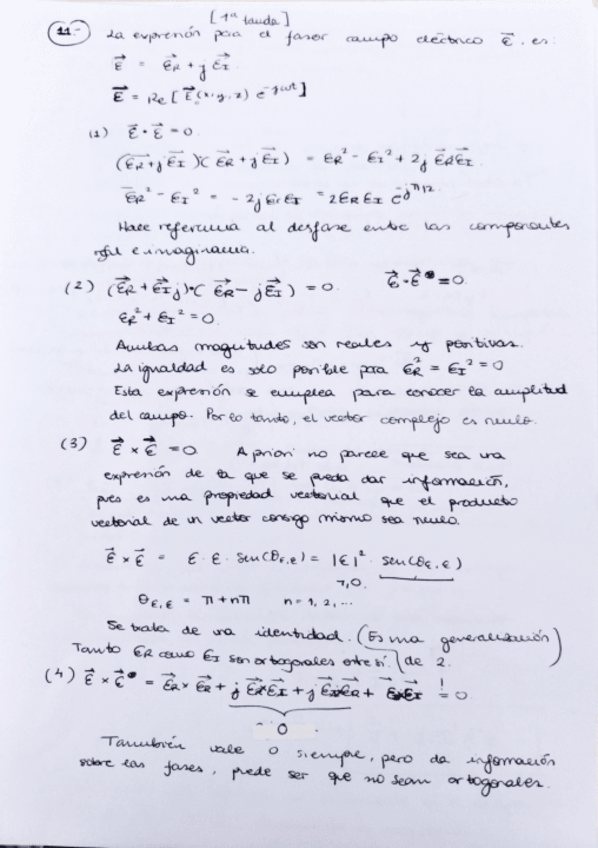 [1ª tanda]
11.- La expresión para el fasor campo eléctrico E⃗, es:
E⃗ = E⃗R + j E⃗I.
E⃗ = Re [ E⃗(x,y,z) e^-jωt ]
(1) E⃗ · E⃗ = 0
(E⃗R + j E⃗I)·( E⃗R + j E⃗I ) = ER² - EI² + 2j E⃗R E⃗I.
ER² - EI² = - 2j ER EI = 2 ER EI e^-jπ/2
Hace referencia al desfase entre las componentes
real e imaginaria.
(2) (E⃗R + E⃗I j)·( E⃗R - j E⃗I ) = 0. E⃗ · E⃗* = 0.
ER² + EI² = 0.
Ambas magnitudes son reales y positivas.
La igualdad es solo posible para ER² = EI² = 0
Esta expresión se emplea para conocer la amplitud
del campo. Por lo tanto, el vector complejo es nulo.
(3) E⃗ × E⃗ = 0. A priori no parece que sea una
expresión de la que se pueda dar información,
pues es una propiedad vectorial que el producto
vectorial de un vector consigo mismo sea nulo.
E⃗ × E⃗ = E · E · sen(θE,E) = |E|² · sen(θE,E)
θE,E = π + nπ n = 1, 2, ...
Se trata de una identidad. (Es una generalización
de 2.)
Tanto ER como EI son ortogonales entre sí.
(4) E⃗ × E⃗* = E⃗R × E⃗R + j E⃗R×E⃗I + j E⃗I×E⃗R + E⃗I×E⃗I = 0.
0
También vale 0 siempre, pero da información
sobre las fases, puede ser que no sean ortogonales.